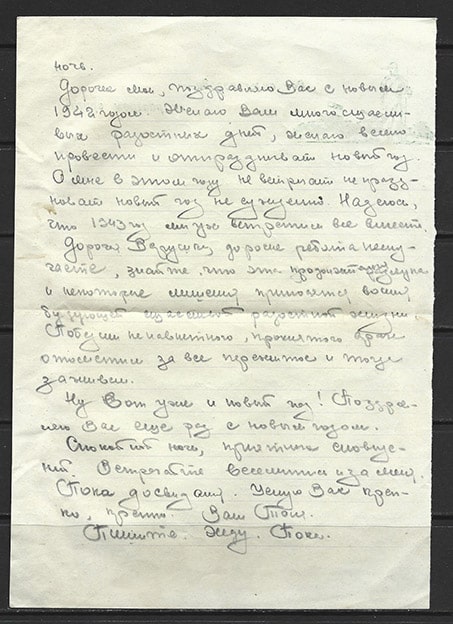 ночь.
Дорогие мои, поздравляю Вас с новым
1942 годом. Желаю Вам много счастли-
вых радостных дней, желаю весело
провести и отпраздновать новый год.
А мне в этом году не встречать не праздно-
новать новый год не суждено. Надеюсь,
что 1943 год мы уже встретим все вместе.
Дорогая, дорогие ребята не ску-
чайте, знайте, что эта разлука
и некоторые лишения приносятся во имя
будущей счастливой радостной жизни.
Победим ненавистного, проклятого врага
отомстим за все пережитое и тогда
заживем.
Ну Вот уже и новый год! Поздрав-
ляю Вас еще раз с новым годом.
Спокойной ночи, приятных сновиде-
ний. Встречайте веселитесь и за меня.
Пока досвидания. Целую Вас креп-
ко, крепко. Ваш Толя.
Пишите. Жду. Пока.